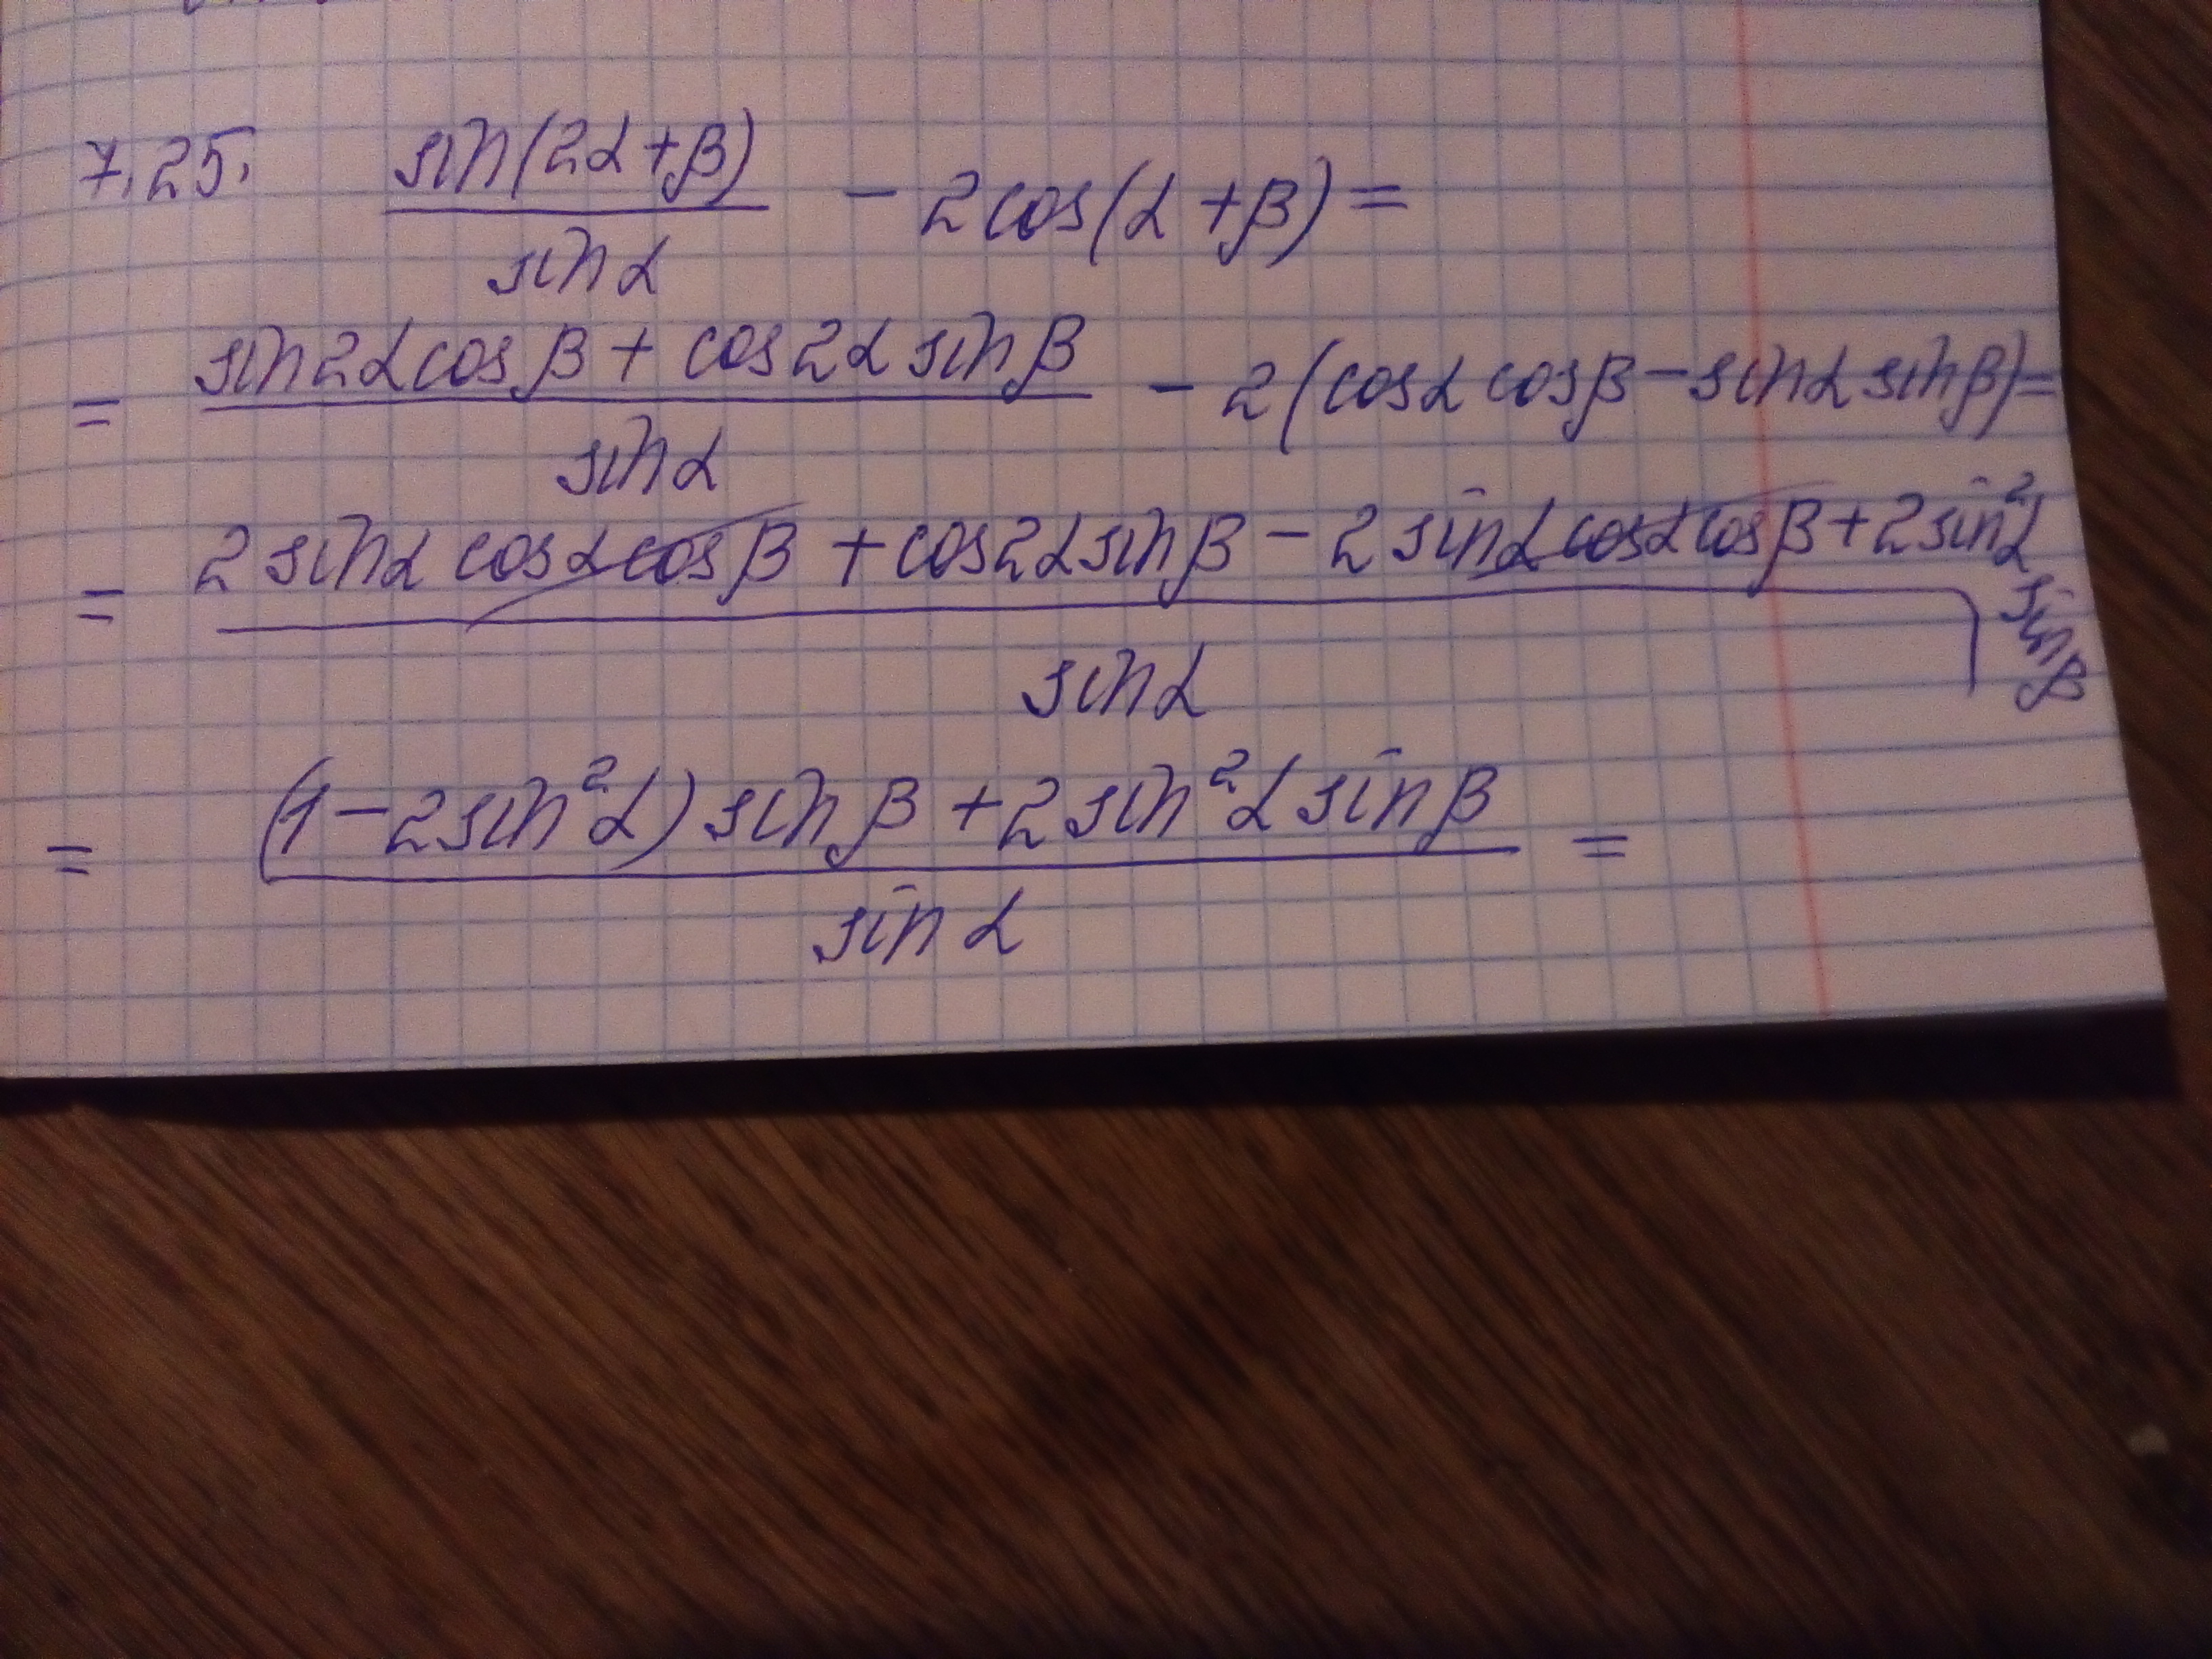 7.25. sin(2α+β)/sinα − 2cos(α+β) =
= (sin2αcosβ + cos2αsinβ)/sinα − 2(cosαcosβ − sinαsinβ) =
= (2sinαcosαcosβ + cos2αsinβ − 2sinαcosαcosβ + 2sin²αsinβ)/sinα
= ((1−2sin²α)sinβ + 2sin²αsinβ)/sinα =